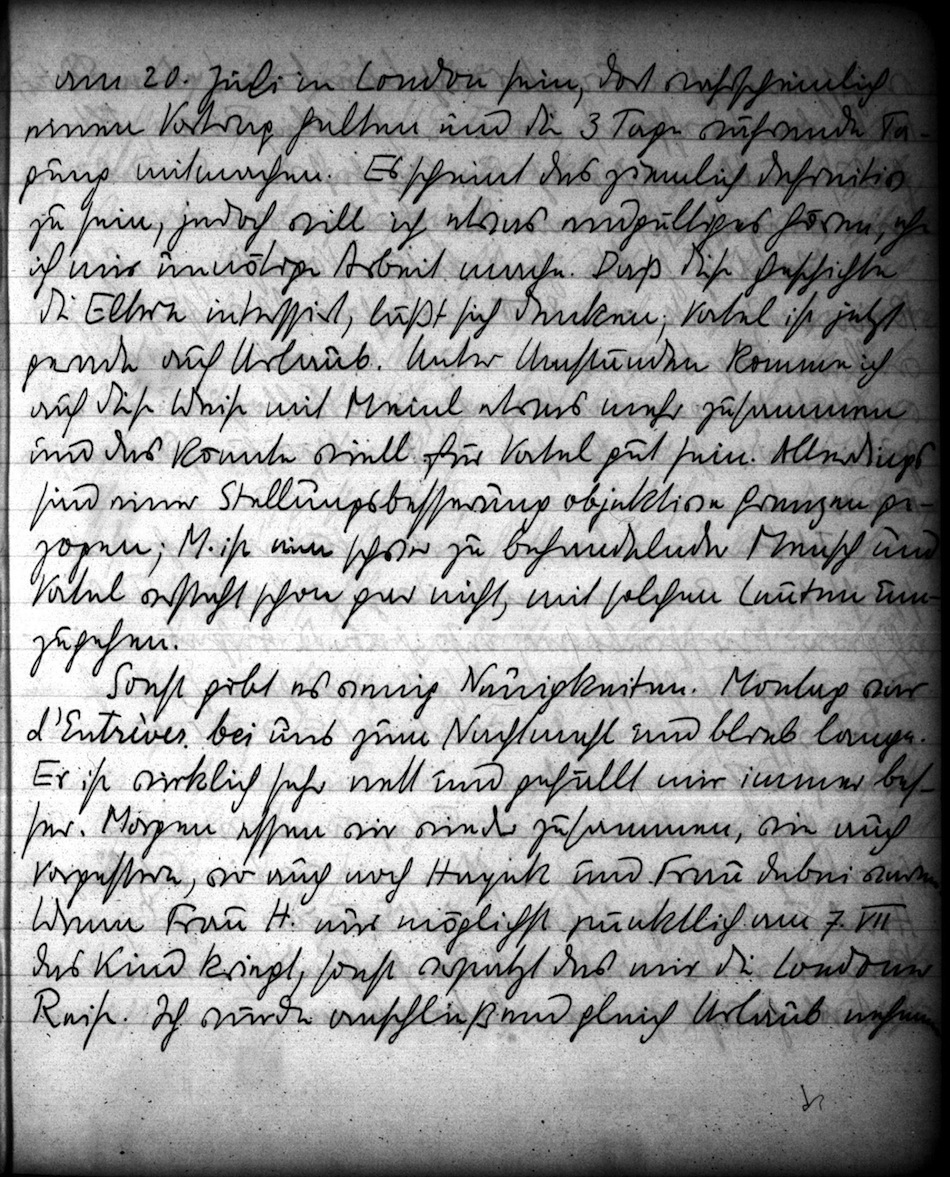 am 20. Juli in London sein, dort wahrscheinlich
einen Vortrag halten und die 3 Tage währende Ta-
gung mitmachen. Es scheint das ziemlich definitiv
zu sein, jedoch will ich etwas endgültiges hören, ehe
ich mir unnötige Arbeit mache. Daß diese Geschichte
die Eltern interessiert, läßt sich denken; Vatel ist jetzt
gerade auf Urlaub. Unter Umständen komme ich
auf diese Weise mit Meinl etwas mehr zusammen
und das könnte viell. für Vatel gut sein. Allerdings
sind einer Stellungsbesserung objektive Grenzen ge-
zogen; M. ist ein schwer zu behandelnder Mensch und
Vatel versteht schon gar nicht, mit solchen Leuten um-
zugehen.
Sonst gibt es wenig Neuigkeiten. Montag war
d'Entrèves bei uns zum Nachtmahl und blieb lange.
Er ist wirklich sehr nett und gefällt mir immer bes-
ser. Morgen essen wir wieder zusammen, wie auch
vorgestern, wo auch noch Hayek und Frau dabei waren.
Wenn Frau H. nur möglichst pünktlich am 7. VII
das Kind kriegt, sonst verpatzt das mir die Londoner
Reise. Ich würde anschließend gleich Urlaub nehmen